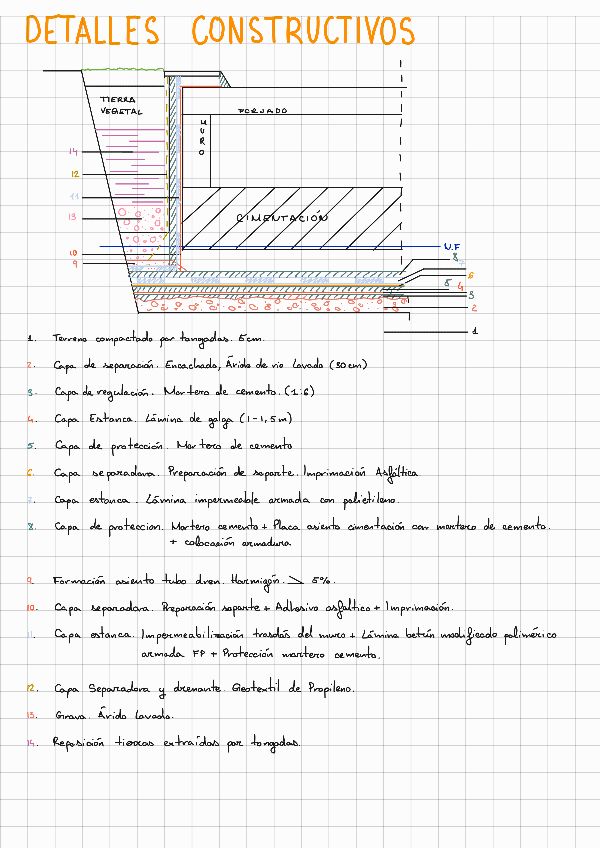 DETALLES CONSTRUCTIVOS
TIERRA
VEGETAL
FORJADO
MURO
14
12
11
13
CIMENTACIÓN
10
9
N.F
8
7
6
5
4
3
2
1
1. Terreno compactado por tongadas. 5cm.
2. Capa de separación. Encachado, Árido de rio lavado (30cm)
3. Capa de regulación. Mortero de cemento. (1:6)
4. Capa Estanca. Lámina de galga (1-1,5m)
5. Capa de protección. Mortero de cemento
6. Capa separadora. Preparación de soporte. Imprimación Asfáltica
7. Capa estanca. Lámina impermeable armada con polietileno.
8. Capa de proteccion. Mortero cemento + Placa asiento cimentación con mortero de cemento.
+ colocación armadura
9. Formación asiento tubo dren. Hormigón. 5%.
10. Capa separadora. Preparación soporte + Adhesivo asfáltico + Imprimación.
11. Capa estanca. Impermeabilización trasdós del muro + Lámina betún modificado polimérico
armada FP + Protección mortero cemento.
12. Capa Separadora y drenante. Geotextil de Propileno.
13. Grava. Árido Lavado.
14. Reposición tierras extraídas por tongadas.